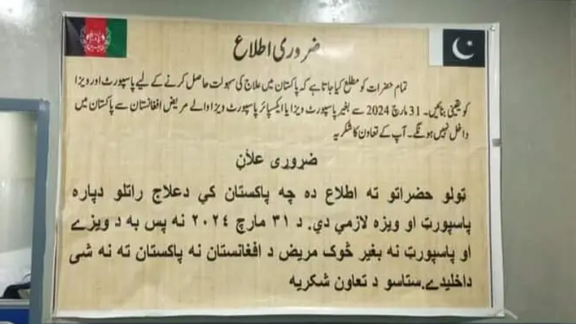 ضروری اطلاع
تمام حضرات کو مطلع کیا جاتا ہے کہ پاکستان میں علاج کی سہولت حاصل کرنے کے لیے پاسپورٹ اور ویزا
کو یقینی بنائیں۔ 31 مارچ 2024 سے بغیر پاسپورٹ ویزا یا ایکسپائر پاسپورٹ ویزا والے مریض افغانستان سے پاکستان میں
داخل نہیں ہونگے۔ آپ کے تعاون کا شکریہ
ضروری علان
ټولو حضراتو ته اطلاع ده چه پاکستان کي دعلاج راتلو دپاره
پاسپورټ او ويزه لازمي دي. د ۳۱ مارچ ۲۰۲۴ نه پس به د ويزے
او پاسپورټ نه بغير څوک مريض د افغانستان نه پاکستان ته نه شی
داخليدے.ستاسو د تعاون شکريه